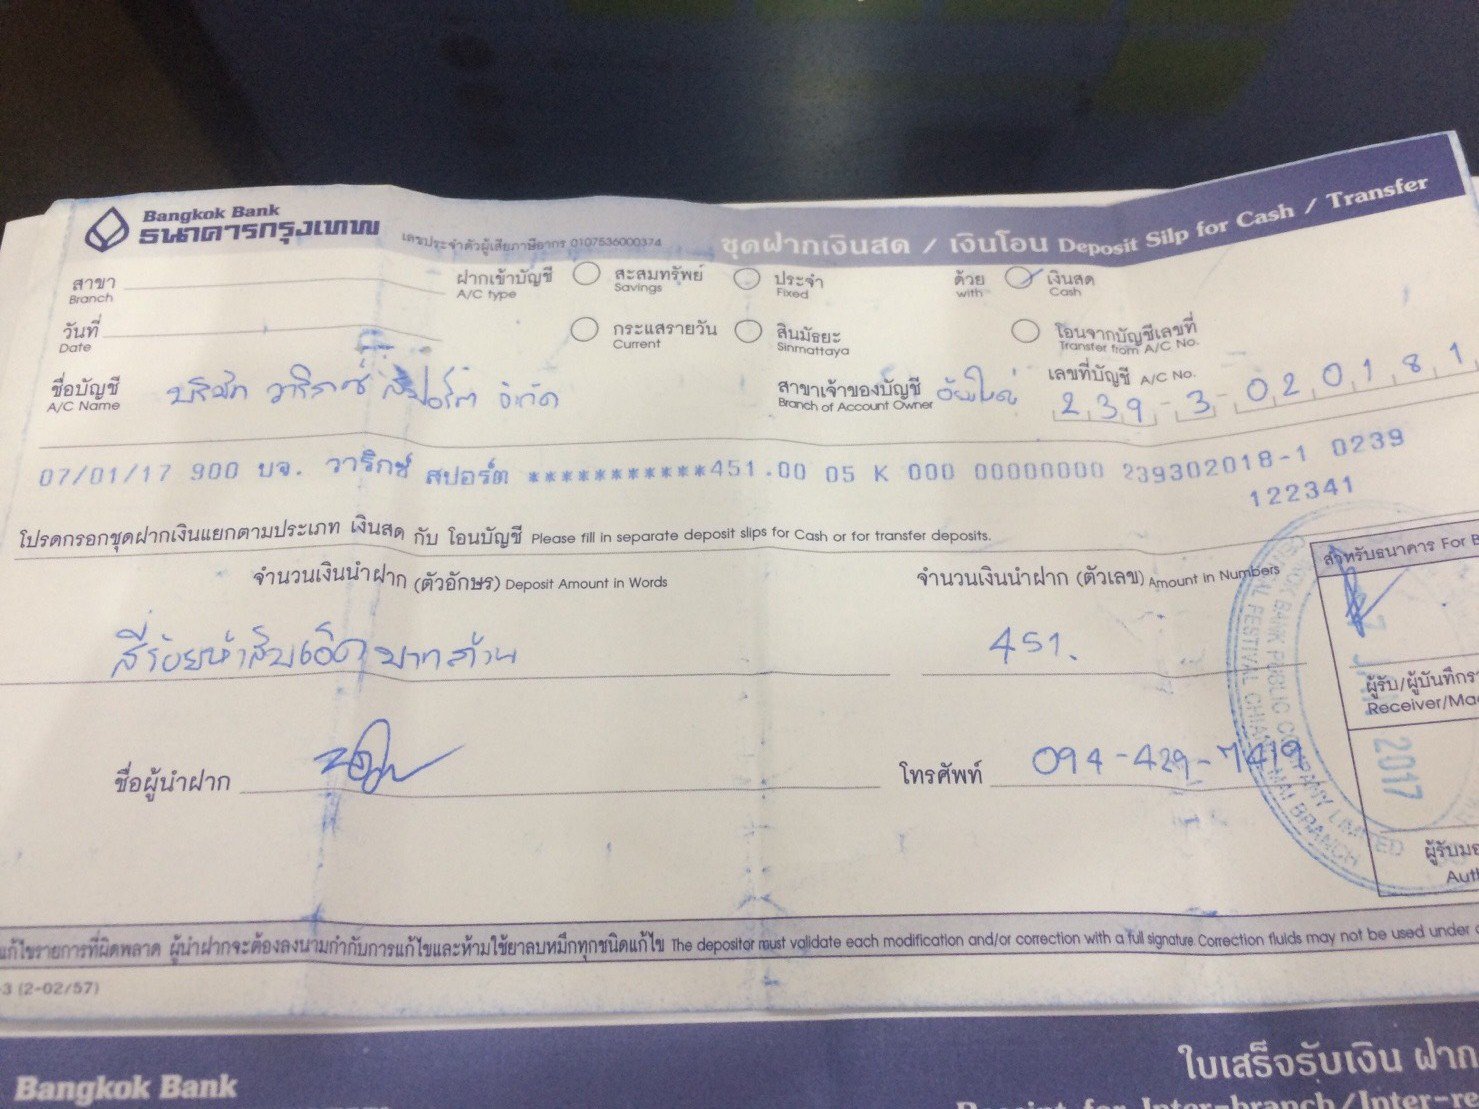 Bangkok Bank
ธนาคารกรุงเทพ
เลขประจำตัวผู้เสียภาษีอากร 0107536000374
ชุดฝากเงินสด / เงินโอน Deposit Silp for Cash / Transfer
สาขา
Branch
ฝากเข้าบัญชี
A/C type
สะสมทรัพย์
Savings
ประจำ
Fixed
ด้วย
with
เงินสด
Cash
วันที่
Date
กระแสรายวัน
Current
สินมัธยะ
Sinmattaya
โอนจากบัญชีเลขที่
Transfer from A/C No.
ชื่อบัญชี
A/C Name
บริษัท วาริกซ์ สปอร์ต จำกัด
สาขาเจ้าของบัญชี
Branch of Account Owner
เลขที่บัญชี A/C No.
239-3-020181
07/01/17 900 บจ. วาริกซ์ สปอร์ต ***********451.00 05 K 000 00000000 239302018-1 0239
122341
โปรดกรอกชุดฝากเงินแยกตามประเภท เงินสด กับ โอนบัญชี Please fill in separate deposit slips for Cash or for transfer deposits.
จำนวนเงินนำฝาก (ตัวอักษร) Deposit Amount in Words
จำนวนเงินนำฝาก (ตัวเลข) Amount in Numbers
สำหรับธนาคาร For B
สี่ร้อยห้าสิบเอ็ดบาทถ้วน
451.
7 JAN 2017
ผู้รับ/ผู้บันทึกรา
Receiver/Ma
ชื่อผู้นำฝาก
โทรศัพท์ 094-429-7419
ผู้รับมอ
Auth
แก้ไขรายการที่ผิดพลาด ผู้นำฝากจะต้องลงนามกำกับการแก้ไขและห้ามใช้ยาลบหมึกทุกชนิดแก้ไข The depositor must validate each modification and/or correction with a full signature. Correction fluids may not be used under
-3 (2-02/57)
Bangkok Bank
ใบเสร็จรับเงิน ฝาก
Receipt for Inter-branch/Inter-re